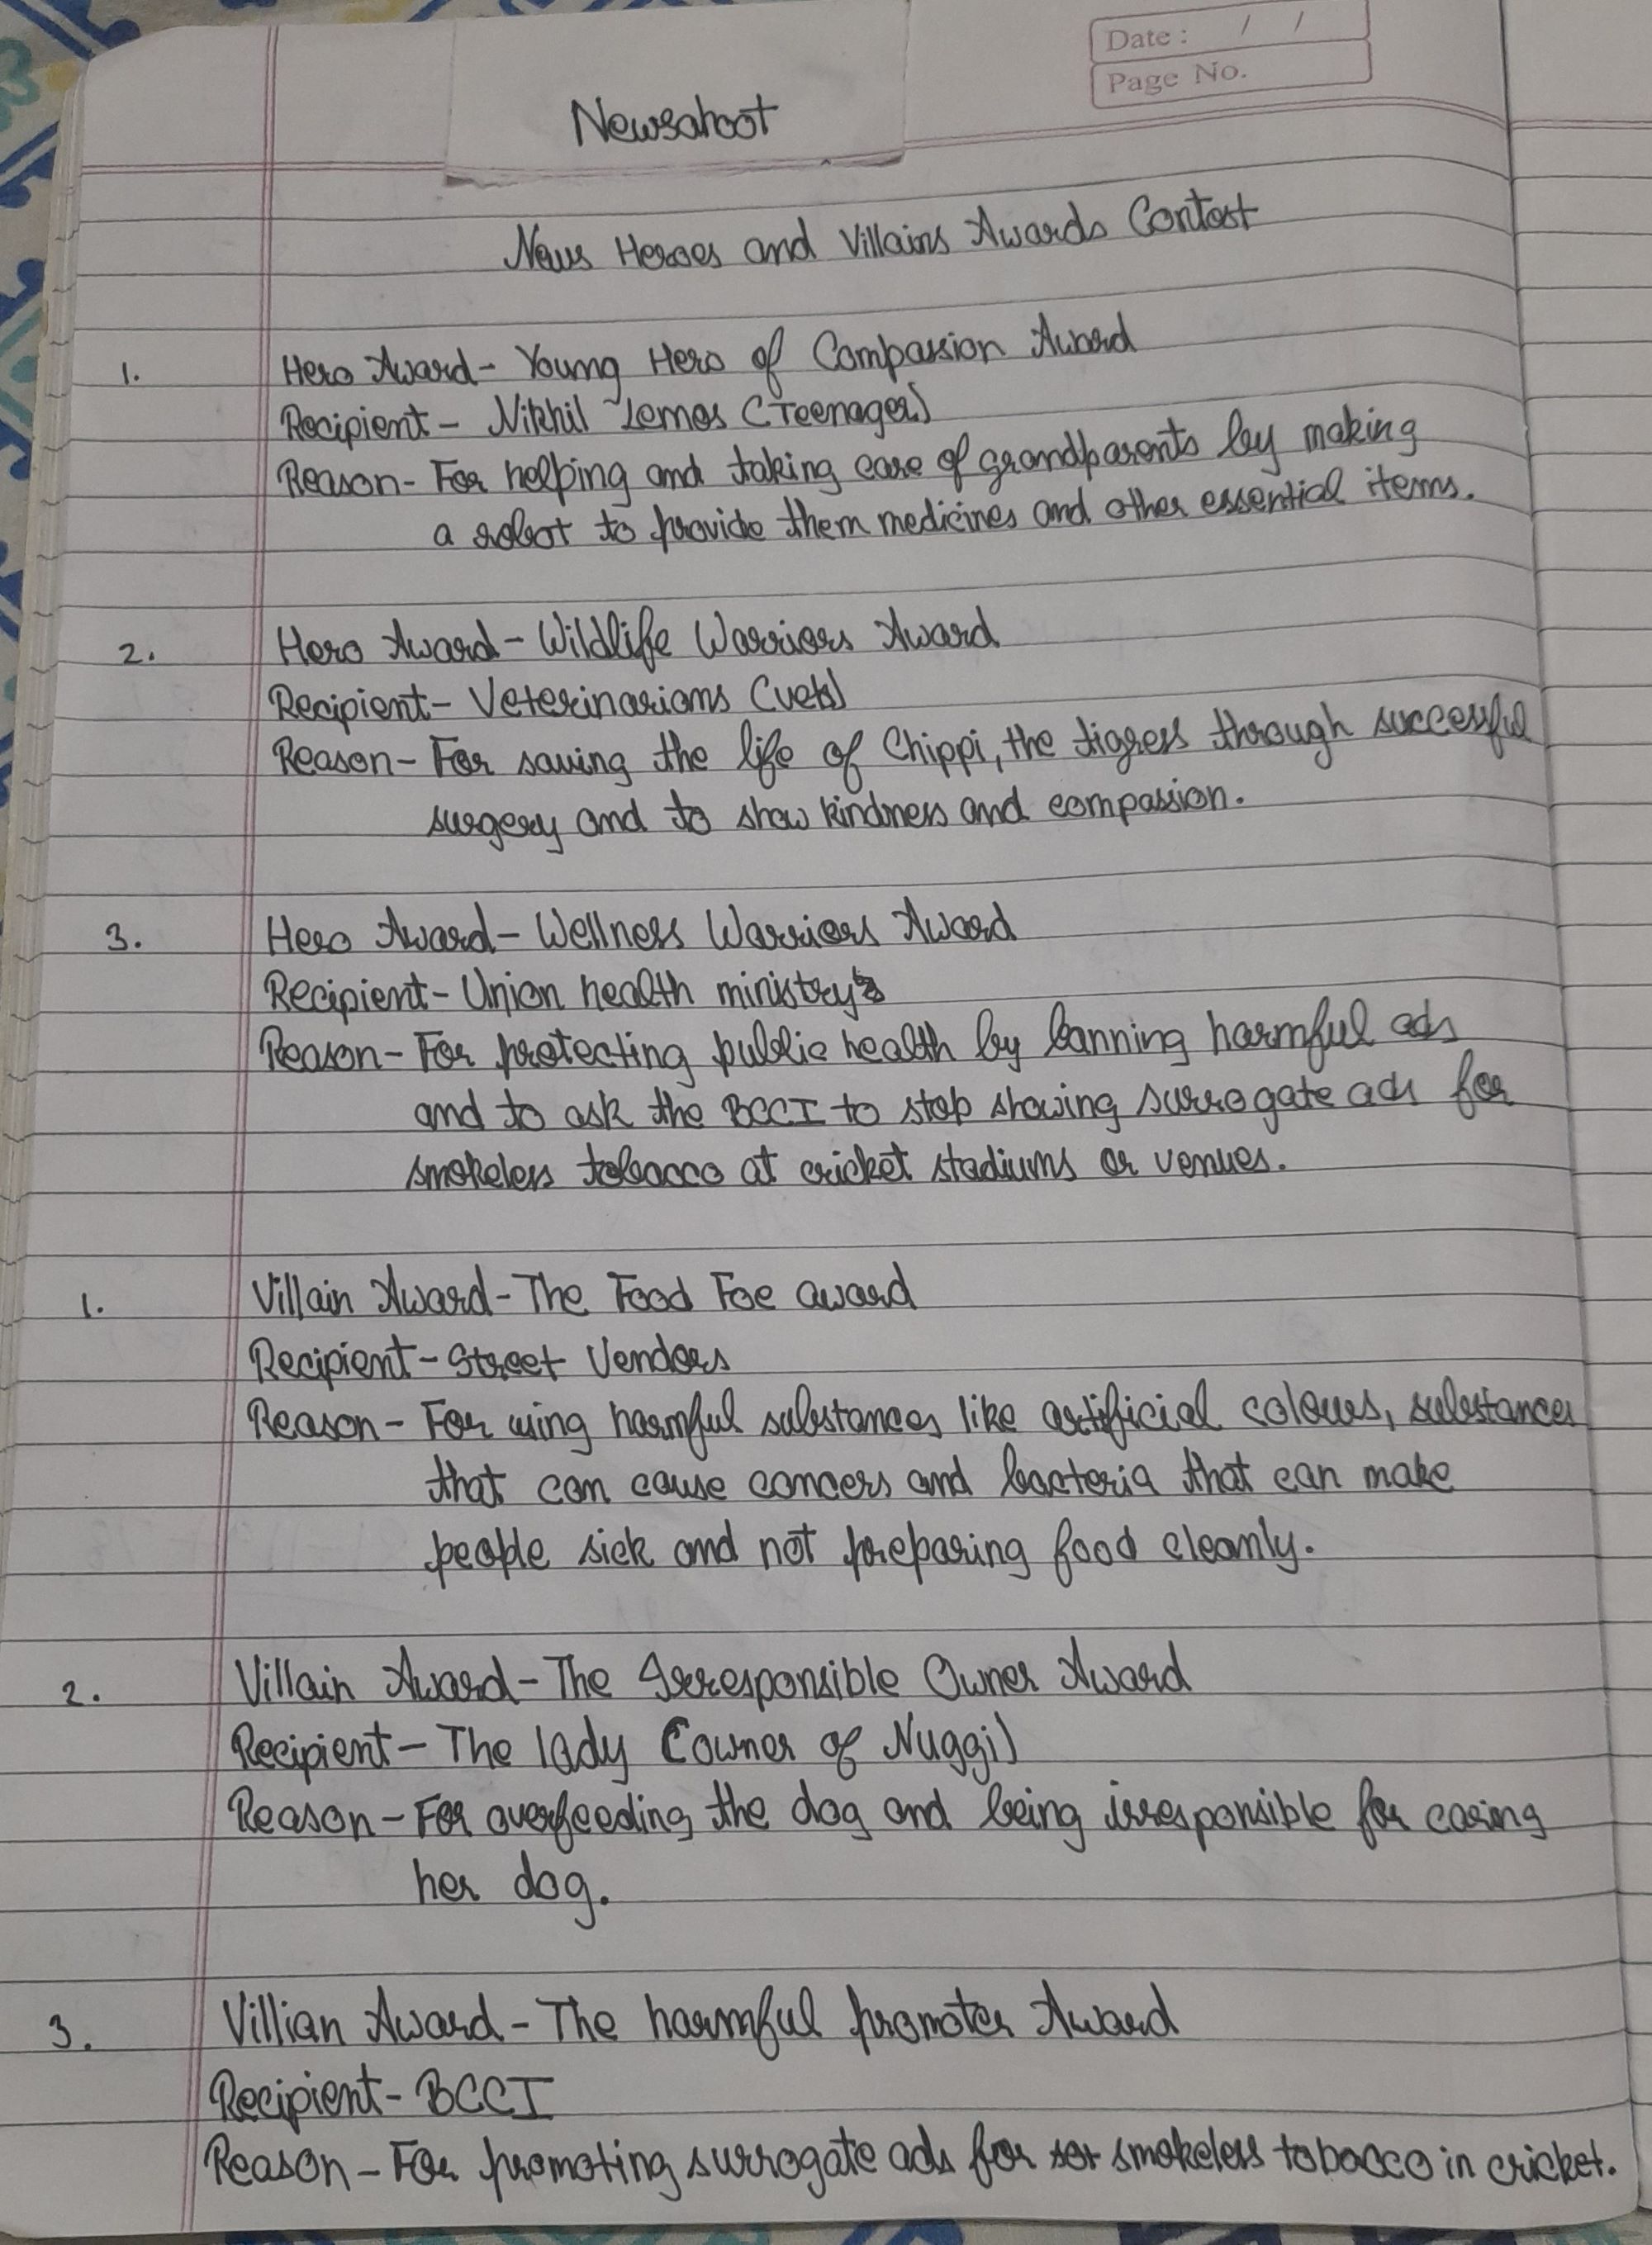 Date : / /
Page No.
Newsahoot
News Heroes and Villains Awards Contest
1. Hero Award- Young Hero of Compassion Award
Recipient- Nikhil Lemos (Teenager)
Reason- For helping and taking care of grandparents by making
a robot to provide them medicines and other essential items.
2. Hero Award- Wildlife Warriors Award
Recipient- Veterinarians (vets)
Reason- For saving the life of Chippi, the tigress through successful
surgery and to show kindness and compassion.
3. Hero Award- Wellness Warriors Award
Recipient- Union health ministry
Reason- For protecting public health by banning harmful ads
and to ask the BCCI to stop showing surrogate ads for
smokeless tobacco at cricket stadiums or venues.
1. Villain Award- The Food Foe award
Recipient- Street Vendors
Reason- For using harmful substances like artificial colours, substances
that can cause cancers and bacteria that can make
people sick and not preparing food cleanly.
2. Villain Award- The Irresponsible Owner Award
Recipient- The lady (owner of Nuggi)
Reason- For overfeeding the dog and being irresponsible for caring
her dog.
3. Villian Award- The harmful promoter Award
Recipient- BCCI
Reason- For promoting surrogate ads for smokeless tobacco in cricket.